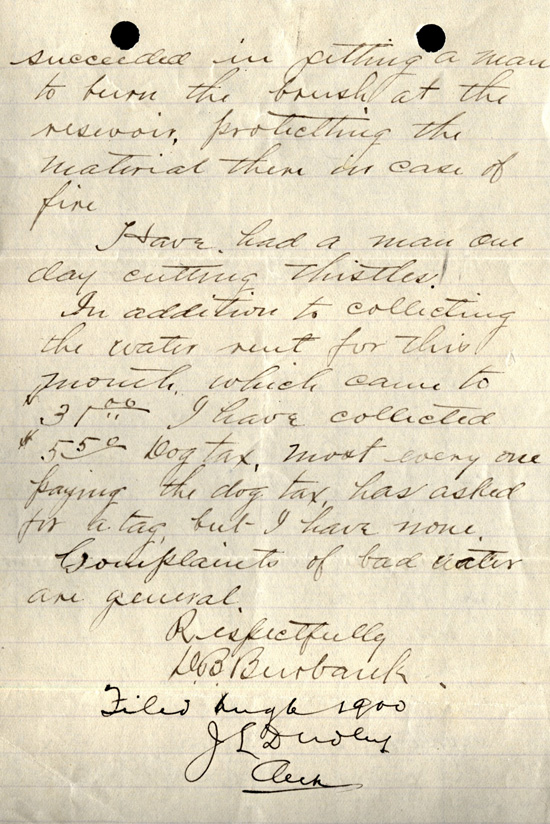 succeeded in getting a man
to burn the brush at the
resevoir, protectting the
material there in case of
fire
Have had a man one
day cutting thistles.
In addition to collecting
the water rent for this
month, which came to
$37.00 I have collected
$5.50 Dog tax, most every one
paying the dog tax, has asked
for a tag, but I have none.
Complaints of bad water
are general
Respectfully
D.B. Burbank.
Filed Aug 6 1900
J L Dudley
Clerk